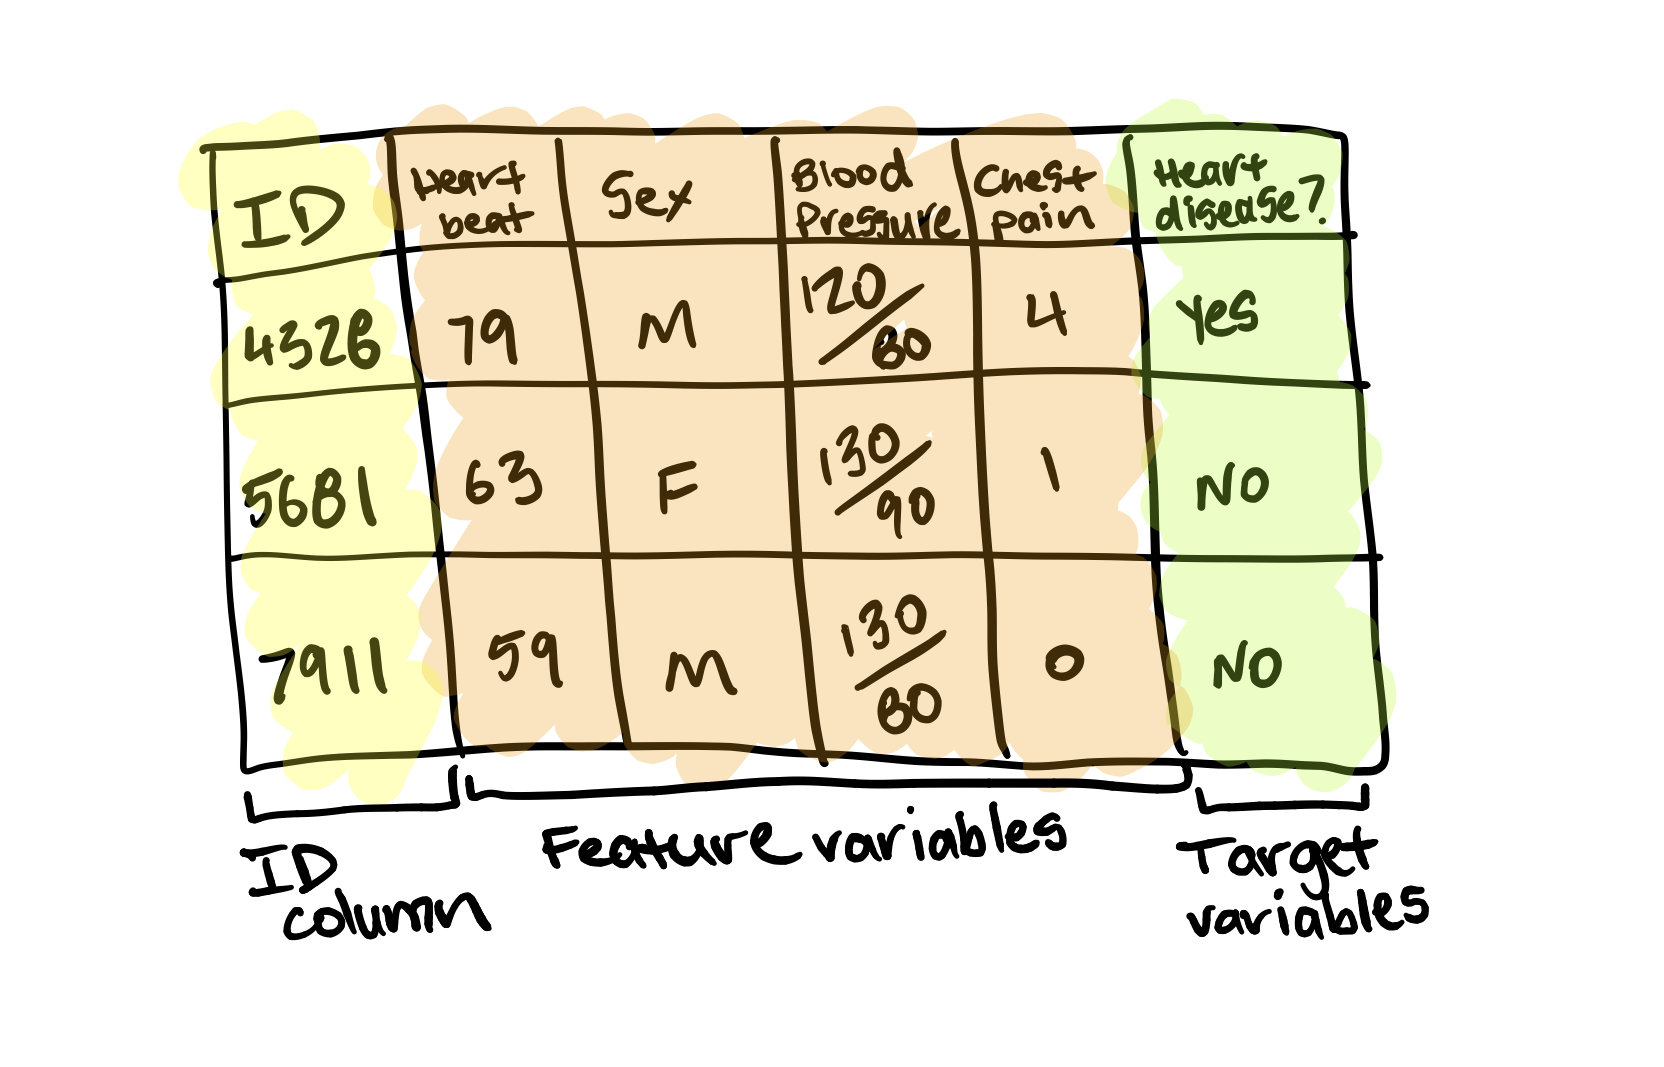 ID Heart beat Sex Blood Pressure Chest pain Heart disease?
4328 79 M 120/80 4 Yes
5681 63 F 130/90 1 No
7911 59 M 130/80 0 No
ID column Feature variables Target variables